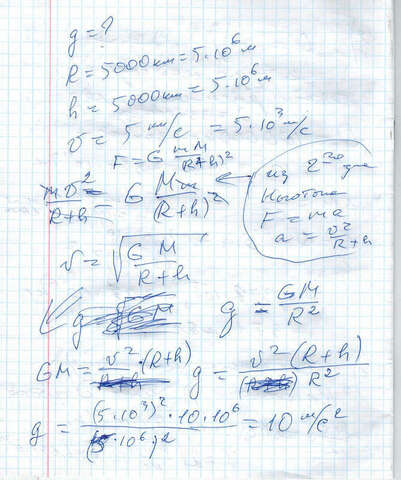 g = ?
R = 5000 км = 5·10⁶ м
h = 5000 км = 5·10⁶ м
v = 5 км/с = 5·10³ м/с
F = G mM/(R+h)²
mv²/(R+h) = G Mm/(R+h)²
из 2го з-на
Ньютона
F = ma
a = v²/(R+h)
v = √(GM/(R+h))
g = GM/R²
GM = v²·(R+h)
g = v²(R+h)/R²
g = (5·10³)²·10·10⁶/(5·10⁶)² = 10 м/с²